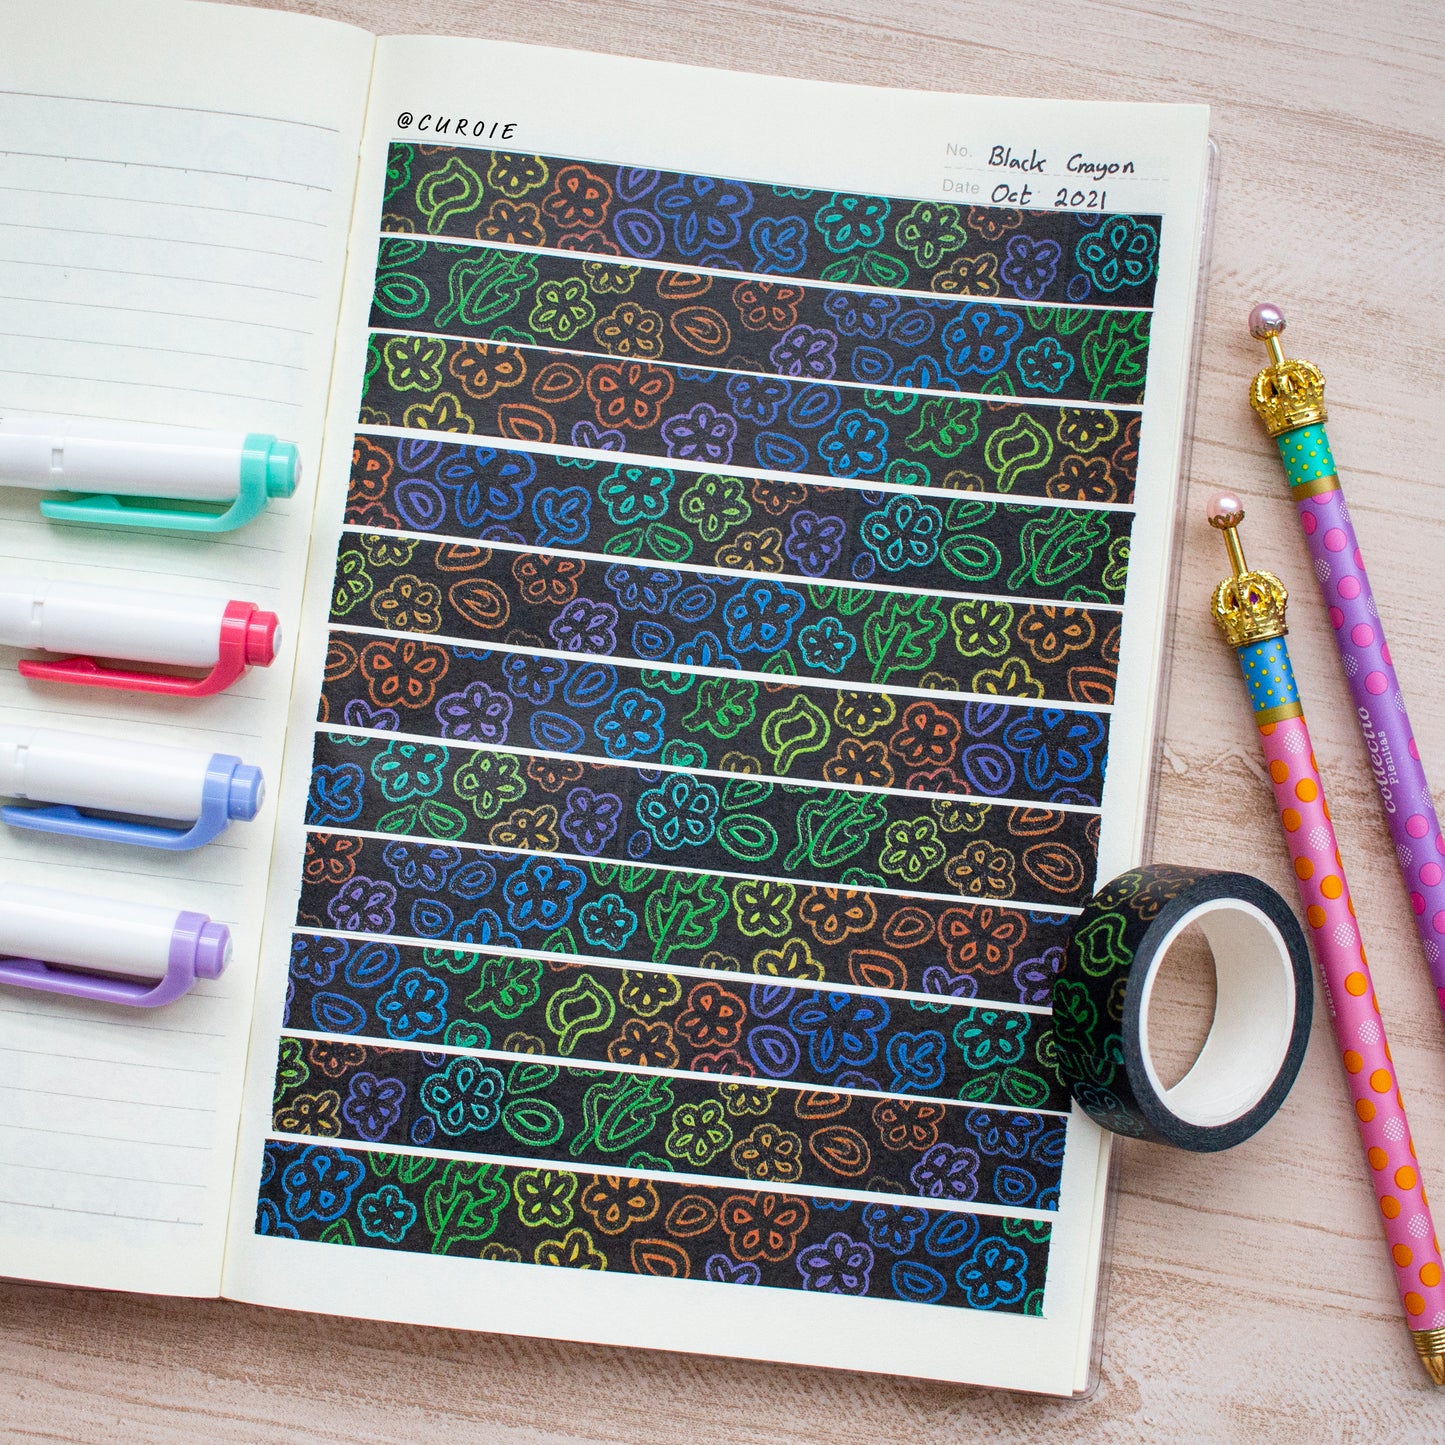 @CUROIE
No. Black Crayon
Date Oct 2021
collectio
Plenitas